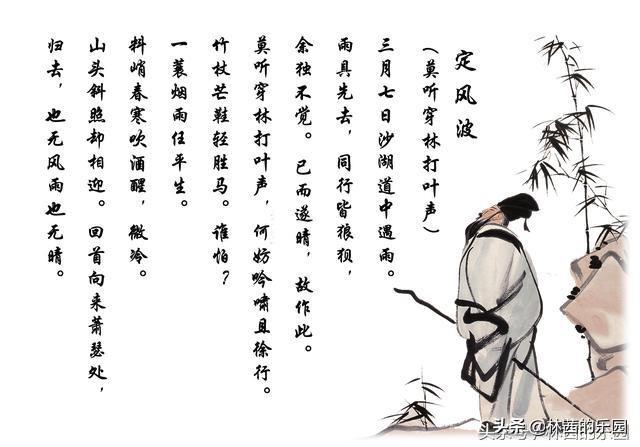 定风波
（莫听穿林打叶声）
三月七日沙湖道中遇雨。
雨具先去，同行皆狼狈，
余独不觉。已而遂晴，故作此。
莫听穿林打叶声，何妨吟啸且徐行。
竹杖芒鞋轻胜马。谁怕？
一蓑烟雨任平生。
料峭春寒吹酒醒，微冷。
山头斜照却相迎。回首向来萧瑟处，
归去，也无风雨也无晴。
头条 @林茜的乐园